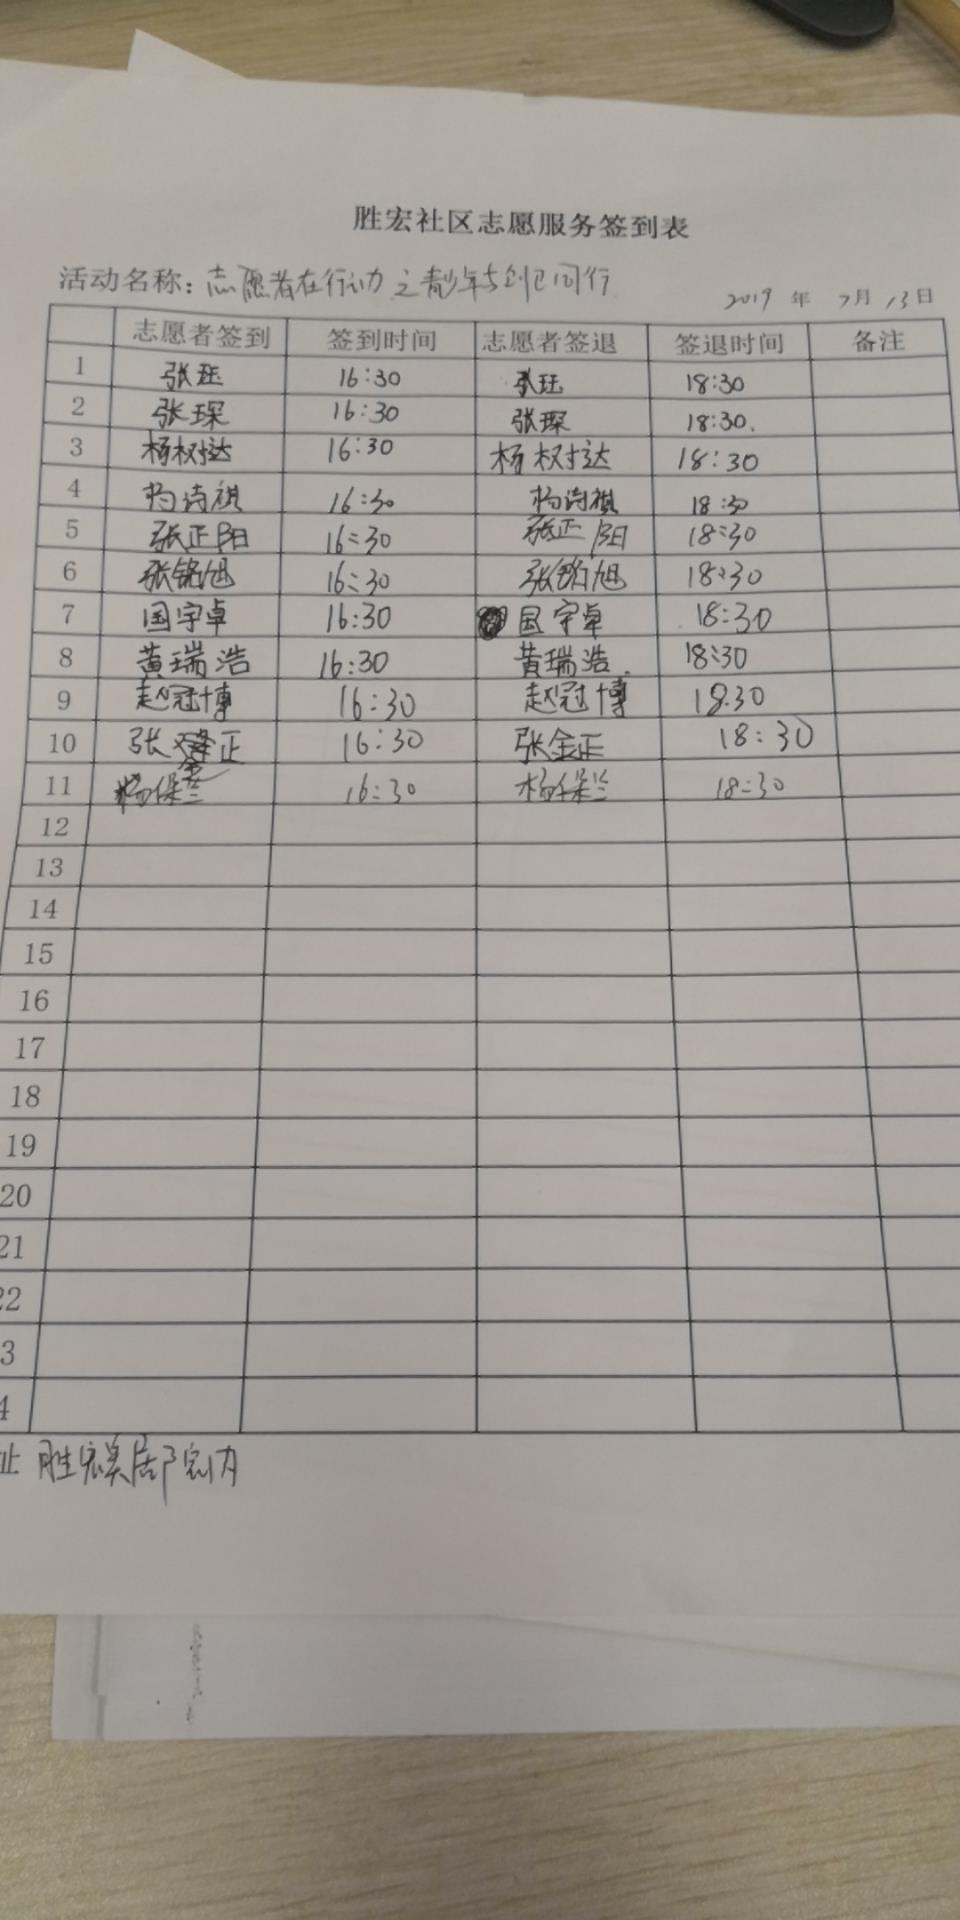 胜宏社区志愿服务签到表
活动名称：志愿者在行动之青少年与创卫同行
2019 年 7月 13日
志愿者签到 签到时间 志愿者签退 签退时间 备注
1 张珏 16:30 张珏 18:30
2 张琛 16:30 张琛 18:30.
3 杨树达 16:30 杨树达 18:30
4 杨诗祺 16:30 杨诗祺 18:30
5 张正阳 16:30 张正阳 18:30
6 张铭旭 16:30 张铭旭 18:30
7 国宇卓 16:30 国宇卓 18:30
8 黄瑞浩 16:30 黄瑞浩. 18:30
9 赵冠博 16:30 赵冠博 18:30
10 张金正 16:30 张金正 18:30
11 杨保兰 16:30 杨保兰 18:30
12
13
14
15
16
17
18
19
20
21
22
3
4
址 胜宏美居